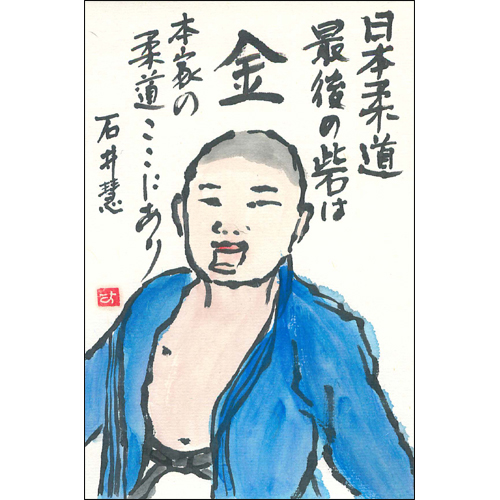 日本柔道
最後の砦は
金
本家の
柔道ここにあり
石井慧